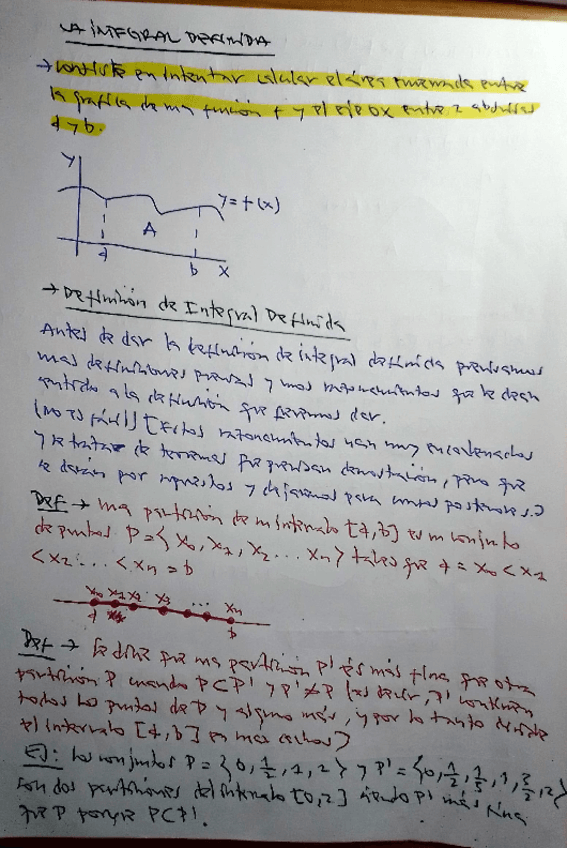 LA INTEGRAL DEFINIDA
→ consiste en intentar calcular el área encerrada entre
la gráfica de una función f y el eje OX entre 2 abscisas
a y b.
y
y = f(x)
A
a
b
x
→ Definición de Integral Definida
Antes de dar la definición de integral definida precisamos
unas definiciones previas y unos razonamientos que le dean
sentido a la definición que queremos dar.
(NO ES FÁCIL) [Estos razonamientos van muy encadenados
y se tratan de teoremas que precisan demostración, pero que
se darán por supuestos y dejaremos para cursos posteriores.]
Def → una partición de un intervalo [a,b] es un conjunto
de puntos P = { x₀, x₁, x₂ ... xn } tales que a = x₀ < x₁
< x₂ ... < xn = b
x₀ x₁ x₂ x₃ ... xn
a
b
Def → Se dice que una partición P' es más fina que otra
partición P cuando P⊂P' y P'≠P (es decir, P' contiene
todos los puntos de P y alguno más, y por lo tanto divide
el intervalo [a,b] en más cachos)
EJ: los conjuntos P = {0, 1/2, 1, 2} y P' = {0, 1/2, 1/5, 1, 3/2, 2}
son dos particiones del intervalo [0,2] siendo P' más fina
que P porque P⊂P'.